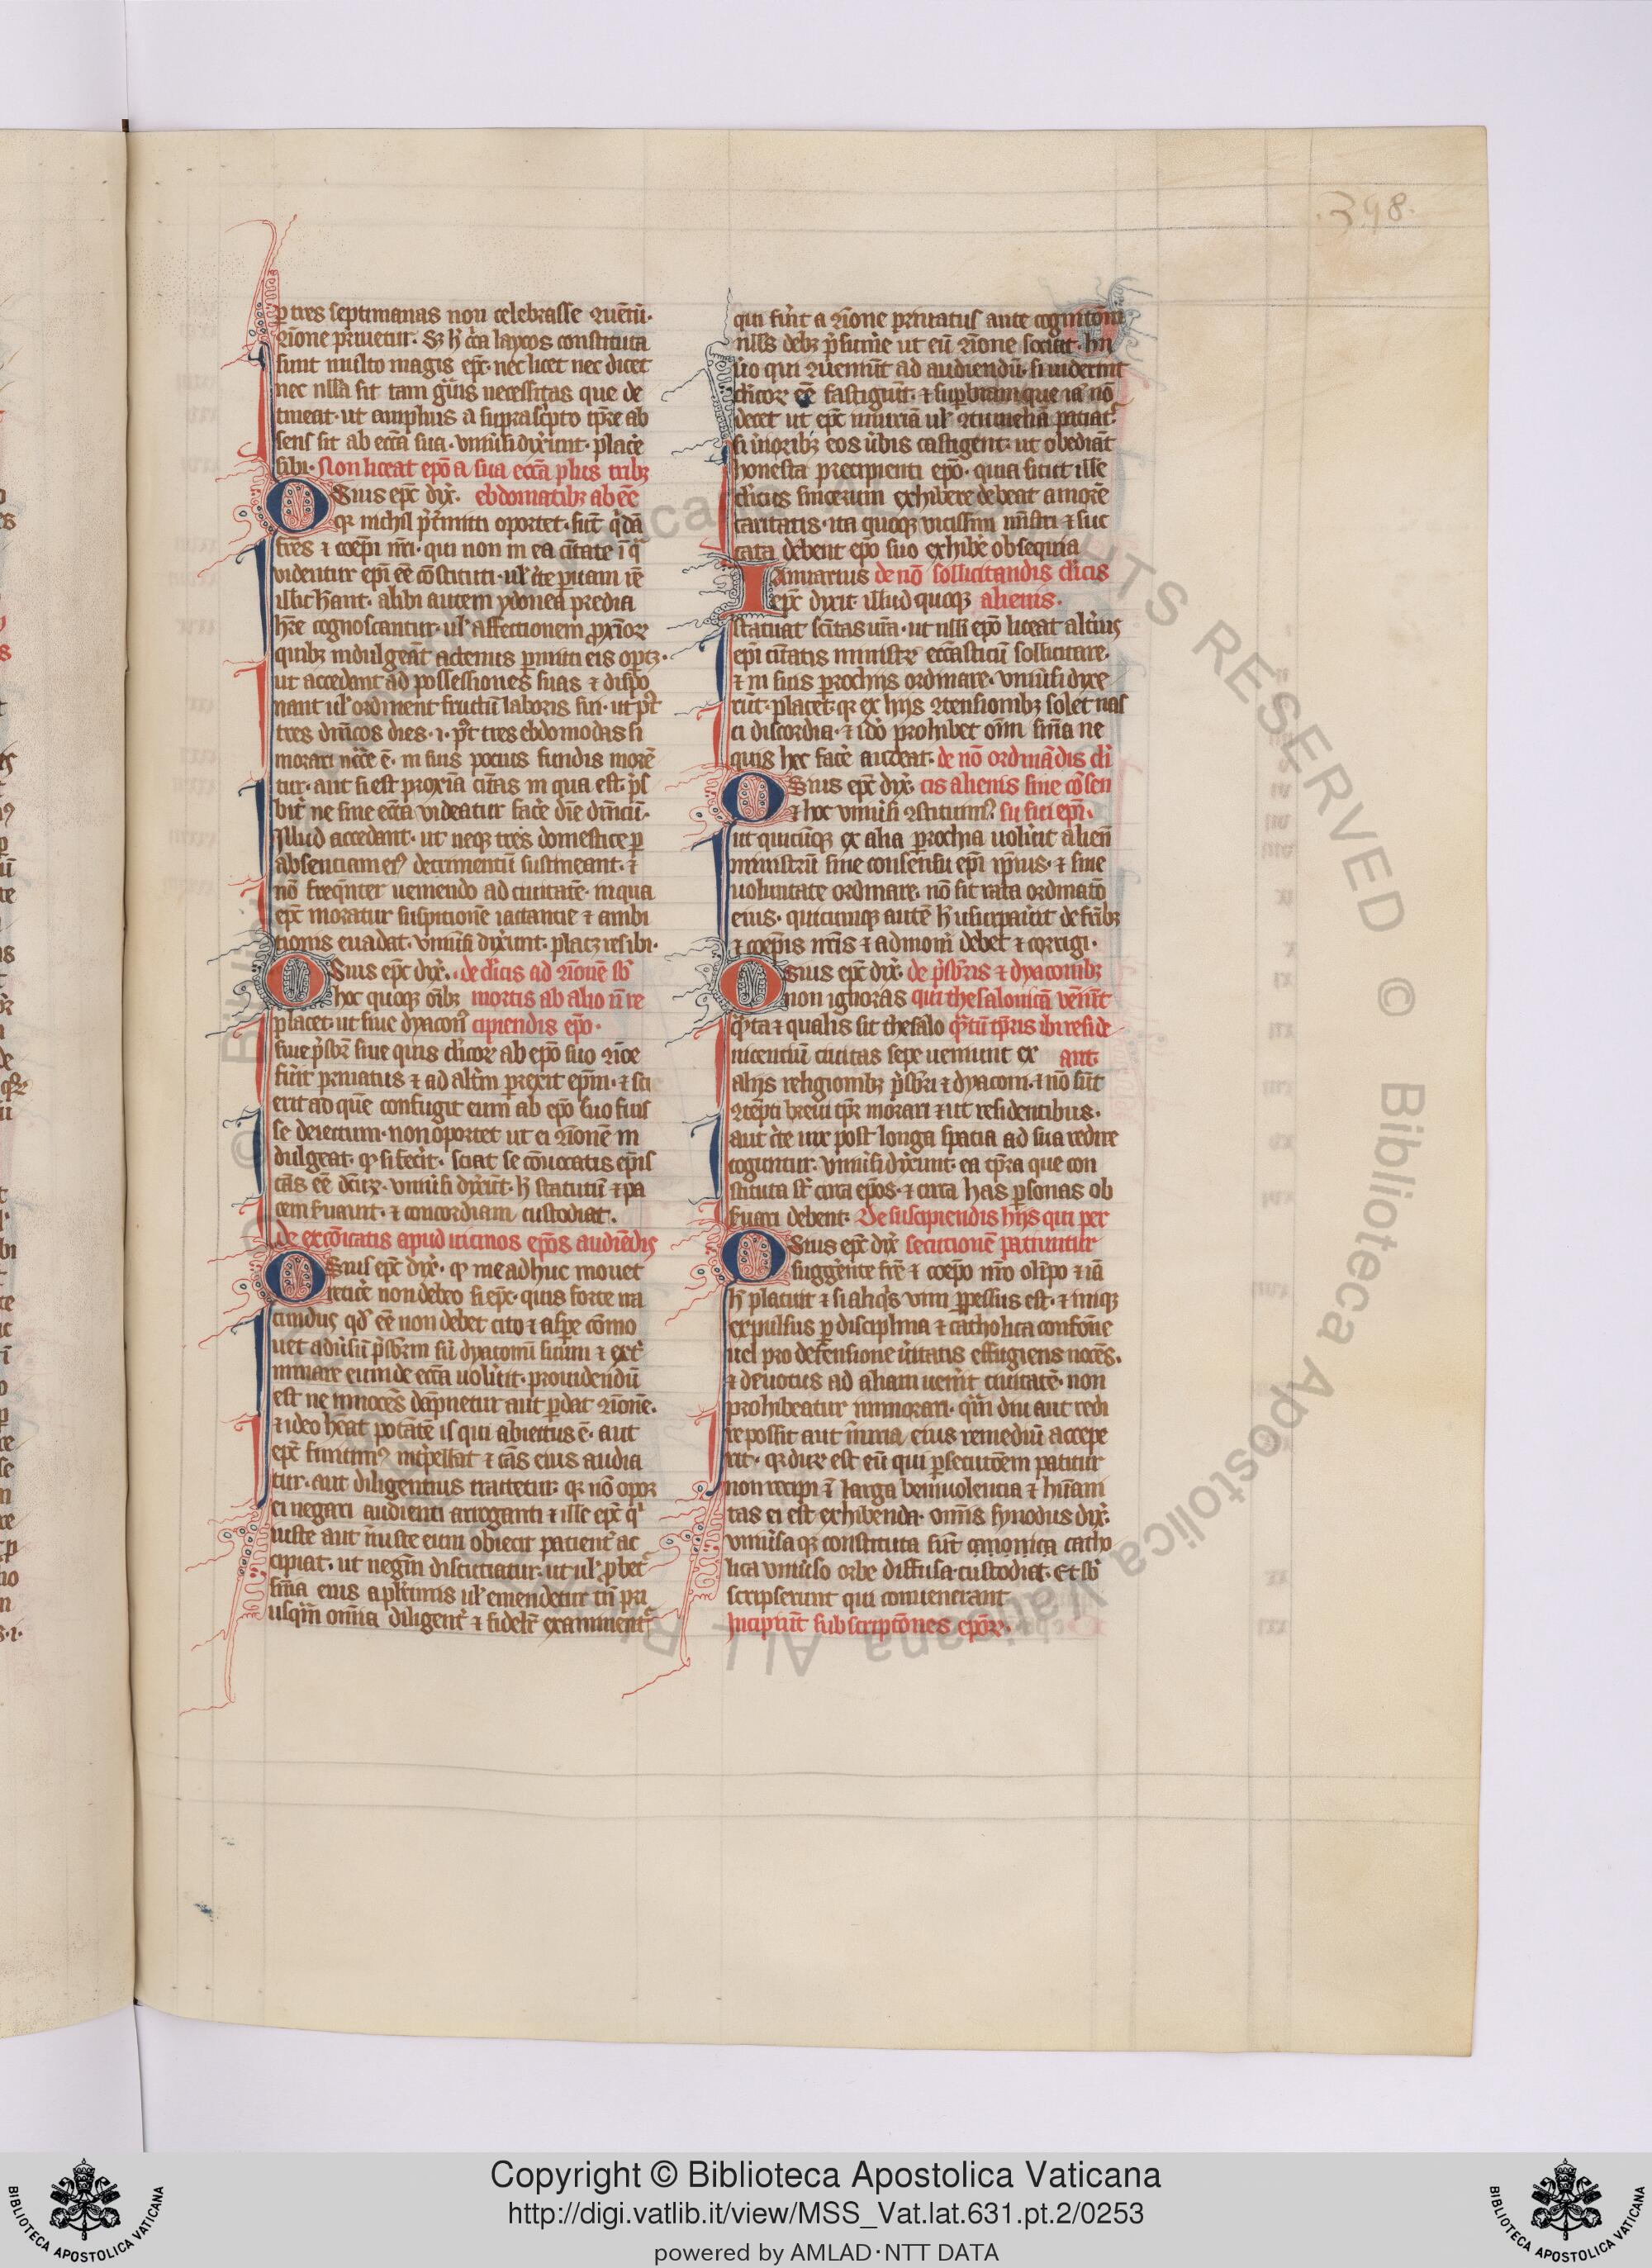 .398.
p tres septimanas non celebrasse ꝯuentū·
ꝯione priuetur· Sꝫ h̄ cͣ laycos constituta
sunt multo magis ep̄c· nec licet nec dicet
nec nll̄a sit tam gͣuis necessitas que de
tineat· ut amplius a suprasc̄pto tp̄re ab
sens sit ab ecc̄a sua· vniũsi dix̄unt· place
sibi· Non liceat ep̄o a sua ecc̄a plus tribꝫ
Osius ep̄c dix̄· ebdomatibꝫ ab eē
qꝛ nichil p̄t̄mitti oportet· sūt q̄dā
fr̄es ⁊ coep̄i nr̄i· qui non in ea ciuitate ī qͣ
videntur ep̄i eē cōstituti· ul̓ c̄te puam rē
illic hant· alibi autem ydonea predia
hr̄e cognoscantur· ul̓ affectionem proxīoꝝ
quibꝫ indulgeāt actenus permitti eis optꝫ·
ut accedant ad possessiones suas ⁊ dispo
nant ul̓ ordinent fructū laboris sui· ut pꝰt
tres dn̄icos dies· ·i· pꝰt tres ebdomodas si
morari ncc̄e ē· in suis pocius fundis morē
tur· aut si est proxīa ciuitas in qua est· p̄s
bit̄ ne sine ecc̄a videatur fac̄e diē dn̄icū·
Illud accedant· ut neqꝫ tres domestice p
absenciam eiꝰ detrimentū sustineant· ⁊
nō freq̄nter ueniendo ad ciuitatē· in qua
ep̄c moratur suspitionē iactantie ⁊ ambi
tionis euadat· vniũsi dix̄unt· placꝫ ⁊ sibi·
Osius ep̄c dix̄· de cl̓icis ad ꝯionē sb̄
hoc quoqꝫ oībꝫ mortis ab alio n̄ re
placet· ut siue dyaconꝰ cipiendis ep̄o·
siue p̄sbr̄ siue quis cl̓icoꝝ ab ep̄o suo ꝯioe
fūit priuatus ⁊ ad alt̄m prexit ep̄m· ⁊ sci
erit ad quē confugit eum ab ep̄o suo fuis
se deiectum· non oportet ut ei ꝯionē in
dulgeat· qͦ si fec̄it· sciat se cōuocatis ep̄is
cās eē dc̄urꝫ· vniũsi dix̄ūt· h̄ statutū ⁊ pa
cem ẜuauit· ⁊ concordiam custodiat·
de excōicatis apud uicinos ep̄os audiēdis
Osius ep̄c dix̄· qͦ me adhuc mouet
reticē non debeo si ep̄c· quis forte ira
cundus qd̓ eē non debet cito ⁊ asp̄e cōmo
uet aduūsū p̄sbr̄m siū dyaconū suum ⁊ ext̄
minare eum de ecc̄a uolūit· prouidendū
est ne innocēs dāpnetur aut perdat ꝯionē·
⁊ ideo heāt potātē is qui abiectus ē· aut
ep̄c finitimꝰ int̄pellat ⁊ cās eius audia
tur· aut diligentius tractetur· qꝛ nō opoꝛ
ei negari audienti arroganti ⁊ ille ep̄c qͥ
iuste aut iniuste eum obiecit patient̄ ac
cipiat· ut neg̓m discutiatur· ut ul̓ probet̄
sn̄ia eius a plurimis ul̓ emendetur tn̄ pri
usq̄m om̄ia diligent̄ ⁊ fidelit̄ examinent̄
qui fūit a ꝯione priuatus ante cognitōm
nll̄s debꝫ p̄sumē ut eū ꝯione societ· hii
ũo qui ꝯuenūt ad audiendū· si uiderint
cl̓icoꝝ eē fastigiūt· ⁊ supbiam que ia nō
decet ut ep̄c iniuriā ul̓ ꝯtumeliā patiat̄·
seūioribꝫ eos ūbis castigent· ut obediāt
honesta precipienti ep̄o· quia sicut ille
cl̓icus sincerum exhibere debeat amorē
caritatis· ita quoqꝫ vicissim mīstri ⁊ suc
cata debent ep̄o suo exhibē obsequia
Ianuarius de nō sollicitandis cl̓icis
ep̄c dixit· illud quoqꝫ alienis·
statuat sc̄itas ur̄a· ut nll̄i ep̄o liceat alt̄ius
ep̄i ciuitatis ministꝝ ecc̄asticū sollicitare·
⁊ in suis parochijs ordinare· vniũsi dixe
rūt· placet· qꝛ ex hijs ꝯtensionibꝫ solet nas
ci discordia· ⁊ idō prohibet om̄ sn̄ia ne
quis hec facē audeat· de nō ordināndis cl̓i
Osius ep̄c dix̄· cis alienis sine cōsen
⁊ hoc vniūsi ꝯstituimꝰ su sui ep̄i·
ut quicūqꝫ ex alia parochia uolūit alienū
ministrū sine consensu ep̄i ip̄ius· ⁊ sine
uoluntate ordinare· nō sit rata ordinatō
eius· quicumqꝫ autē h̄ usurpauīt de fr̄ibꝫ
⁊ coep̄is nr̄is ⁊ admonī debet ⁊ corrigi·
Osius ep̄c dix̄· de p̄sbr̄is ⁊ dyaconibꝫ
non ignoras qui thesalonicā venīūt
qͣnta ⁊ qualis sit thesalo qͣtū tp̄ris ibi reside
nicentiū ciuitas sepe ueniunt ex ant·
alijs religionibꝫ p̄sbr̄i ⁊ dyaconi· ⁊ nō sūt
ꝯtēpti breui tp̄r morari ⁊ ut residentibus·
aut c̄te uix post longa spatia ad sua redire
coguntur· vniũsi dix̄unt· ea tp̄ra que con
stituta sꝉt circa ep̄os· ⁊ circa has personas ob
ẜuari debent· De suscipiendis hijs qui per
Osius ep̄c dix̄ secutionē patiuntur
suggerente fr̄e ⁊ coep̄o nr̄o oli̓po ⁊ iā
h̄ placuit ⁊ si aliqͥs vim perpessus est· ⁊ iniqꝫ
expulsus p disciplina ⁊ catholica confōne
uel pro defensione ūitatis effugiens nocēs·
⁊ deuotus ad aliam uenīt ciuitatē· non
prohibeatur inmorari· qͣm diu aut redi
re possit aut iniuria eius remediū accepe
rit· qꝛ dure est eū qui persecutōem patitur
non recipi· ī larga beniuolencia ⁊ hūani
tas ei est exhibenda· omīs synodus dix̄·
vniũsa qꝫ constituta sūt canonica catho
lica vniũso orbe diffusa· custodiet· Et sb̄
scripserunt qui conuenerant
Incipiūt subscriptōnes ep̄oꝝ·
Copyright © Biblioteca Apostolica Vaticana
http://digi.vatlib.it/view/MSS_Vat.lat.631.pt.2/0253
powered by AMLAD·NTT DATA
BIBLIOTECA APOSTOLICA VATICANA
BIBLIOTECA APOSTOLICA VATICANA
© Biblioteca Apostolica Vaticana ALL RIGHTS RESERVED